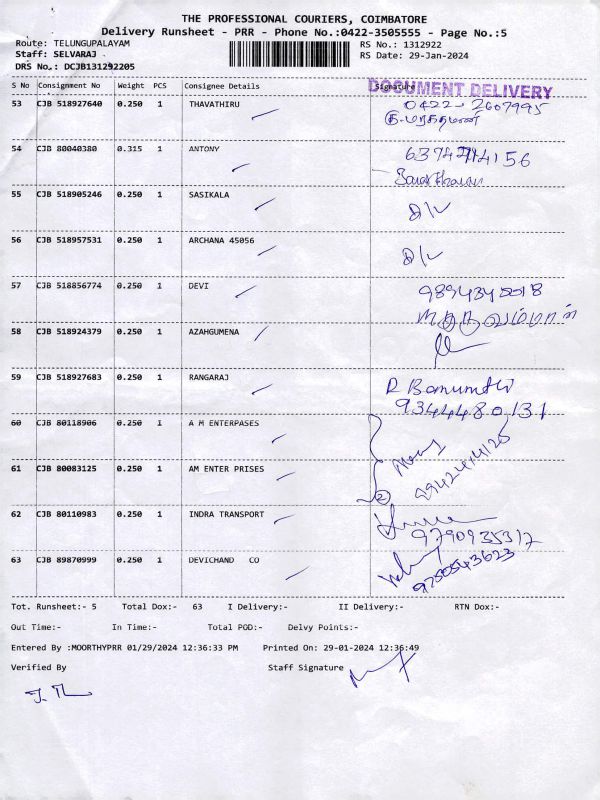 THE PROFESSIONAL COURIERS, COIMBATORE
Delivery Runsheet - PRR - Phone No.:0422-3505555 - Page No.:5
Route: TELUNGUPALAYAM
RS No.: 1312922
Staff: SELVARAJ
RS Date: 29-Jan-2024
DRS No.: DCJB131292205
S No Consignment No Weight PCS Consignee Details Signature
DOCUMENT DELIVERY
53 CJB 518927640 0.250 1 THAVATHIRU 0422-2607995
54 CJB 80040380 0.315 1 ANTONY
55 CJB 518905246 0.250 1 SASIKALA D/V
56 CJB 518957531 0.250 1 ARCHANA 45056 D/V
57 CJB 518856774 0.250 1 DEVI
58 CJB 518924379 0.250 1 AZAHGUMENA
59 CJB 518927683 0.250 1 RANGARAJ R
9344480131
60 CJB 80118906 0.250 1 A M ENTERPASES
61 CJB 80083125 0.250 1 AM ENTER PRISES
2
62 CJB 80110983 0.250 1 INDRA TRANSPORT
9790935317
63 CJB 89870999 0.250 1 DEVICHAND CO
9750543623
Tot. Runsheet:- 5 Total Dox:- 63 I Delivery:- II Delivery:- RTN Dox:-
Out Time:- In Time:- Total POD:- Delvy Points:-
Entered By :MOORTHYPRR 01/29/2024 12:36:33 PM Printed On: 29-01-2024 12:36:49
Verified By Staff Signature